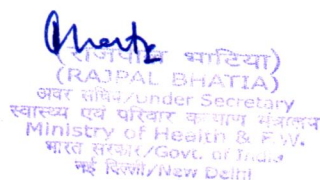 (राजपाल भाटिया)
(RAJPAL BHATIA)
अवर सचिव/Under Secretary
स्वास्थ्य एवं परिवार कल्याण मंत्रालय
Ministry of Health & F.W.
भारत सरकार/Govt. of India
नई दिल्ली/New Delhi